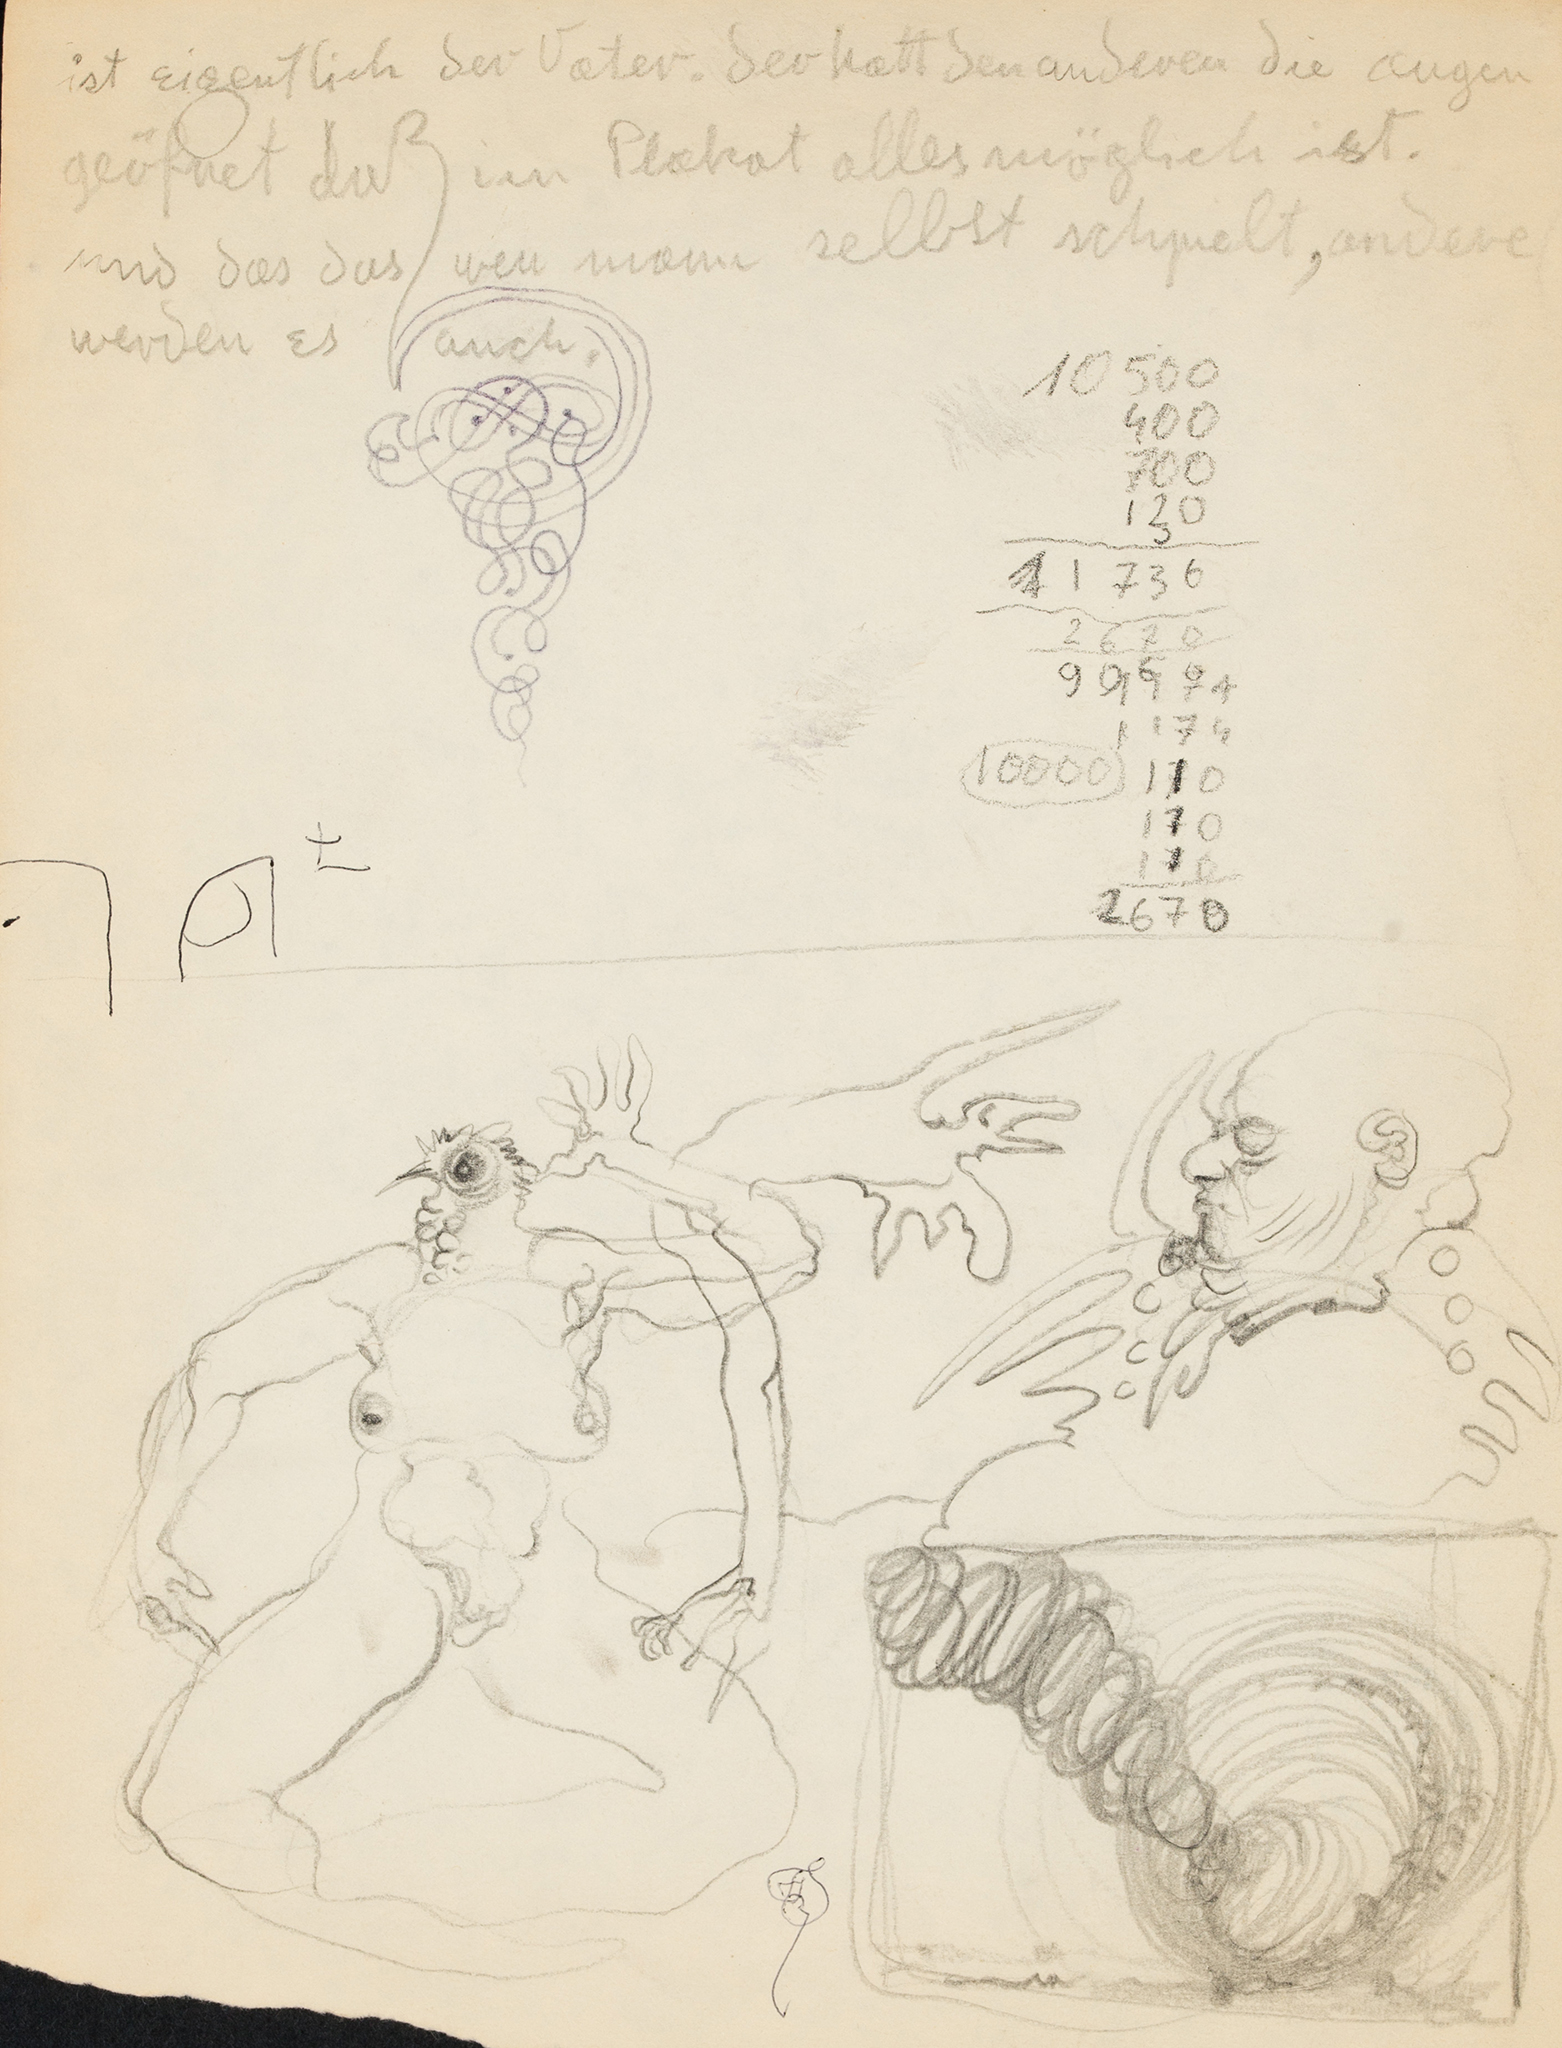 ist eigentlich der Vater. der hatt den anderen die augen
geöfnet daß im Plakat alles möglich ist.
und das das wen mann selbst schpielt, andere
werden es auch.
10 500
400
700
120
3
11 736
2670
1174
10000 110
170
170
2670